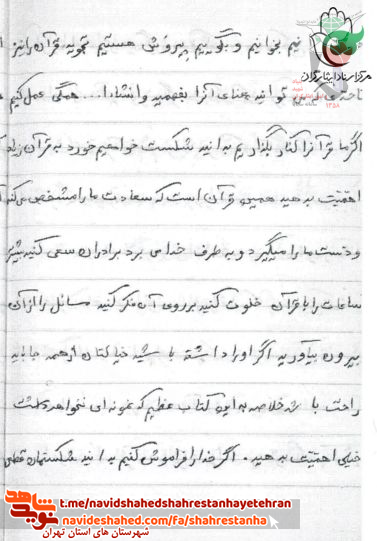 نیم بخوانیم و بگوییم پیرویش هستیم تجوید قرآن را نیز
توانید معنای آنرا بفهمید و انشاءا... همگی عمل کنیم
اگر ما قرآنرا کنار بگذاریم بدانید شکست خواهیم خورد به قرآن زیاد
اهمّیّت بدهید همین قرآن است که سعادت ما را مشخص می کند
و دست ما را میگیرد و به طرف خدا می برد برادران سعی کنید بیشتر
ساعات را با قرآن خلوت کنید بر روی آن فکر کنید مسائل را از آن
بیرون بیاورید اگر او را داشته باشید خیالتان از همه جا باید
راحت باشد خلاصه به این کتاب عظیم که نمونه ای نخواهد داشت
خیلی اهمّیّت بدهید. اگر خدا را فراموش کنیم بدانید شکستمان قطعی
مرکز اسناد ایثارگران
نوید شاهد
t.me/navidshahedshahrestanhayetehran
navideshahed.com/fa/shahrestanha
شهرستان های استان تهران